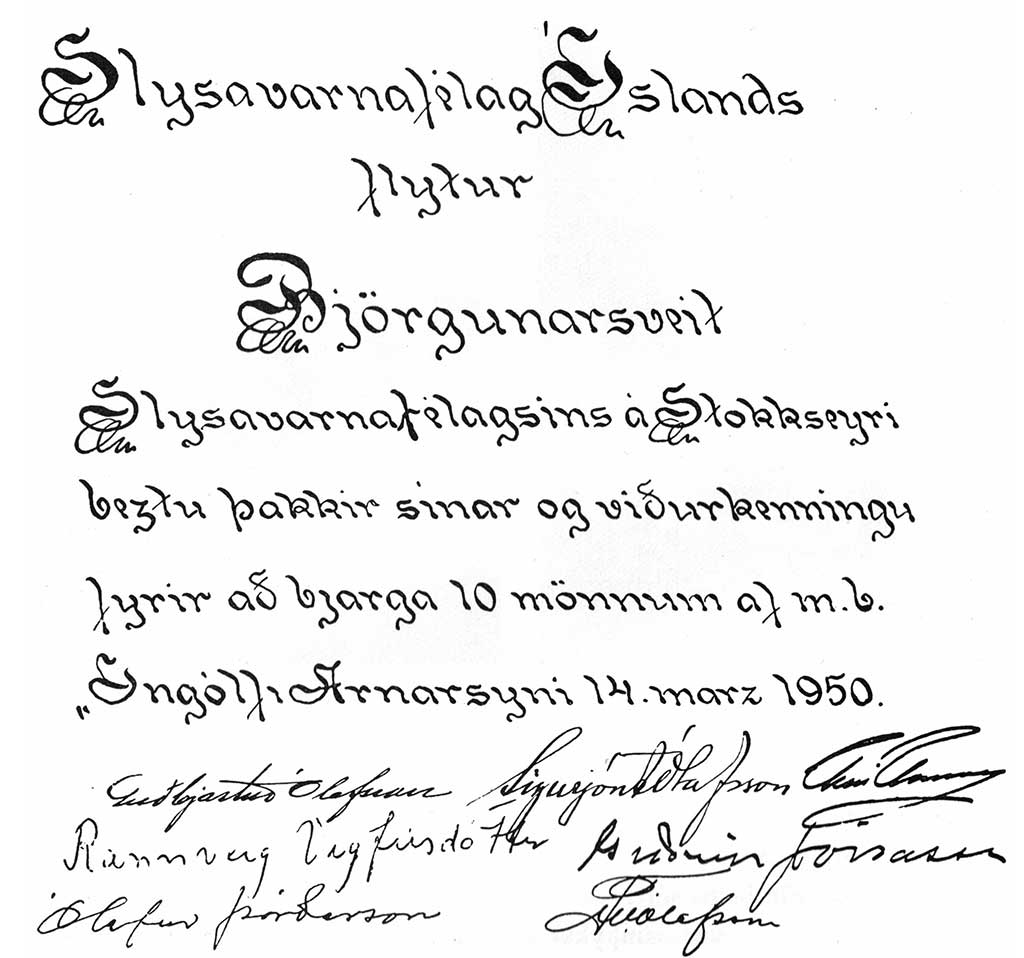 Slysavarnafélag Íslands
flytur
Björgunarsveit
Slysavarnafélagsins á Stokkseyri
beztu þakkir sínar og viðurkenningu
fyrir að bjarga 10 mönnum af m.b.
„Ingólfi Arnarsyni 14. marz 1950.
Guðbjartur Ólafsson Sigurjón Á Ólafsson
Rannveig Vigfúsdóttir Guðrún Jónasson
Ólafur Þórðarson Ólafsson